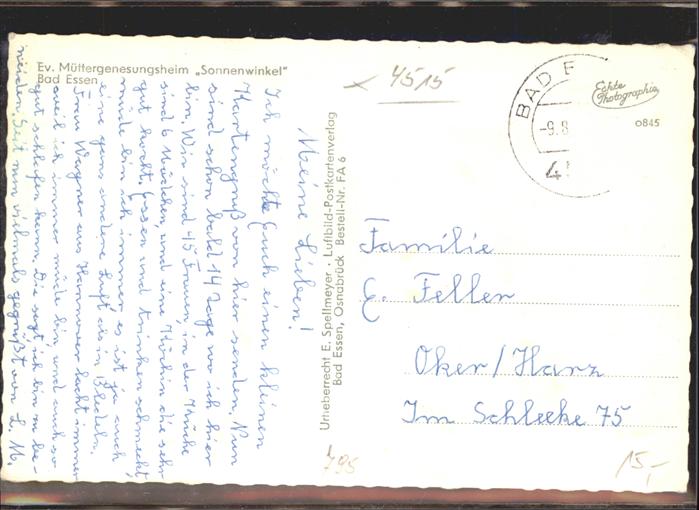 Ev. Müttergenesungsheim „Sonnenwinkel"
Bad Essen
Meine Lieben!
Ich möchte Euch einen kleinen
Kartengruß von hier senden. Nun
sind schon bald 14 Tage wo ich hier
bin. Wir sind 45 Frauen, in der Küche
sind 6 Mädchen, und eine Köchin die sehr
gut kocht. Essen und trinken schmeckt
müde bin ich immer es ist ja auch
eine ganz andere Luft als in
Frau Wagner aus Hannover lacht immer
weil ich immer müd bin und auch so
gut schlafen kann. Die sagt ich bin zu be-
neiden. Seit nun vielmals gegrüßt von L. M.
Urheberrecht E. Spellmeyer · Luftbild-Postkartenverlag
Bad Essen, Osnabrück Bestell-Nr. FA 6
4515
BAD E
-9.8
45
Echte
Photographie
0845
Familie
E. Feller
Oker/Harz
Im Schleeke 75
795
15,-